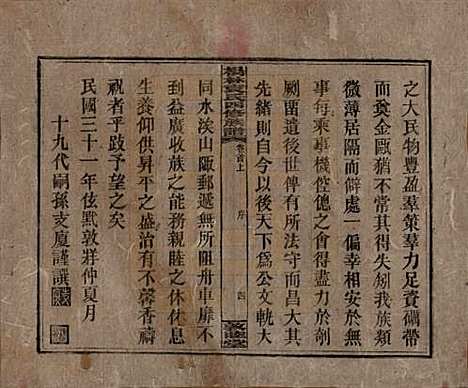 之大民物豐盈羣策羣力足資礪帶
而奠金甌猶不常其得失矧我族類
微薄居隔而僻處一偏幸相安於無
事每乘車機倥傯之會得盡力於剞
劂留遺後世俾有所法守而昌大其
先緒則自今以後天下為公文軌大
楊林袁氏四修族譜
卷首上
序
四
同水涘山陬郵遞無所阻舟車靡不
到益廣收族之任務親睦之休休息
生養仰供昇平之盛治有不馨香禱
祝者乎跂予望之矣
民國三十一年佽默敦牂仲夏月
十九代嗣孫支廈謹譔